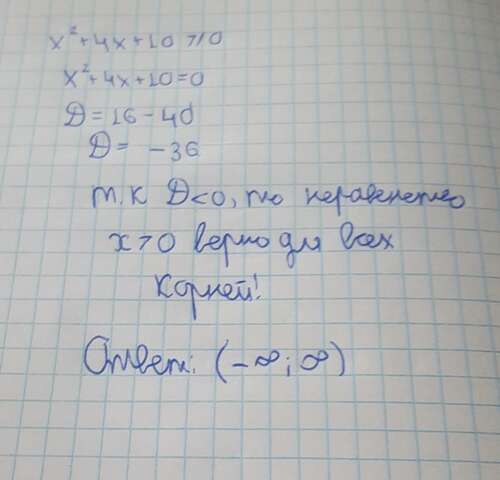 x²+4x+10≥0
x²+4x+10=0
D=16-40
D= -36
т.к D<0, то неравенство
x>0 верно для всех
корней!
Ответ: (-∞; ∞)